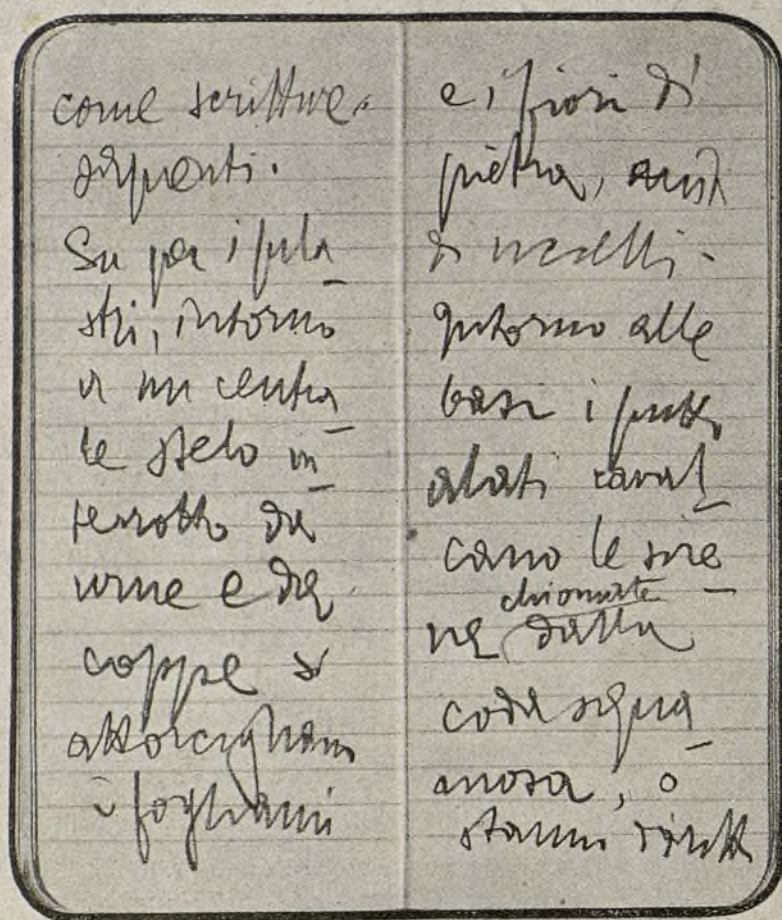 come scritture
Su per i pila_
stri, intorno
a un centra_
le stelo in_
terrotto da
urne e da
coppe si
attorcigliano
i fogliami
e i fiori di
pietra, misti
di uccelli.
Intorno alle
basi i putti
alati caval_
cano le sire_
chiomate
ne dalla
coda squa_
mosa, o
stanno diritti